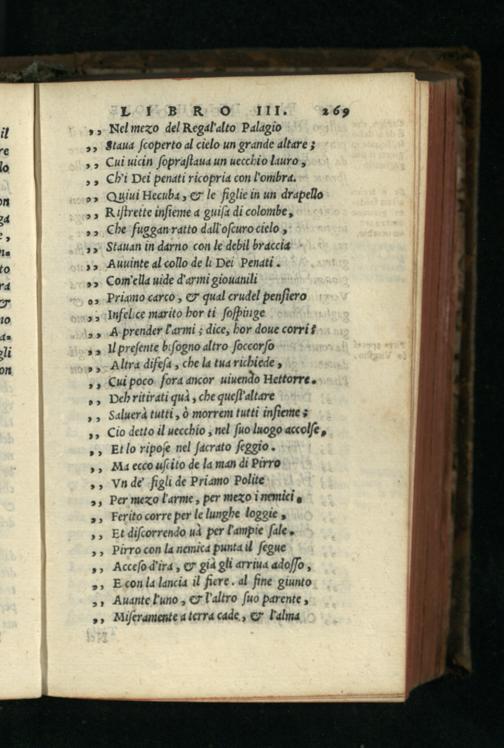 LIBRO III. 269
,, Nel mezo del Regal'alto Palagio
,, Staua ſcoperto al cielo un grande altare;
,, Cui uicin ſopraſtaua un uecchio lauro,
,, Ch'i Dei penati ricopria con l'ombra.
,, Quiui Hecuba, & le figlie in un drapello
,, Riſtrette inſieme a guiſa di colombe,
,, Che fuggan ratto dall'oſcuro cielo,
,, Stauan in darno con le debil braccia
,, Auuinte al collo de li Dei Penati.
,, Com'ella uide d'armi giouanili
,, Priamo carco, & qual crudel penſiero
,, Infelice marito hor ti ſoſpinge
,, A prender l'armi; dice, hor doue corri?
,, Il preſente biſogno altro ſoccorſo
,, Altra difeſa, che la tua richiede,
,, Cui poco fora ancor uiuendo Hettorre.
,, Deh ritirati quà, che queſt'altare
,, Saluerà tutti, ò morrem tutti inſieme;
,, Cio detto il uecchio, nel ſuo luogo accolſe,
,, Et lo ripoſe nel ſacrato ſeggio.
,, Ma ecco uſcito de la man di Pirro
,, Vn de' figli de Priamo Polite
,, Per mezo l'arme, per mezo i nemici,
,, Ferito corre per le lunghe loggie,
,, Et diſcorrendo uà per l'ampie ſale.
,, Pirro con la nemica punta il ſegue
,, Acceſo d'ira, & già gli arriua adoſſo,
,, E con la lancia il fiere. al fine giunto
,, Auante l'uno, & l'altro ſuo parente,
,, Miſeramente a terra cade, & l'alma